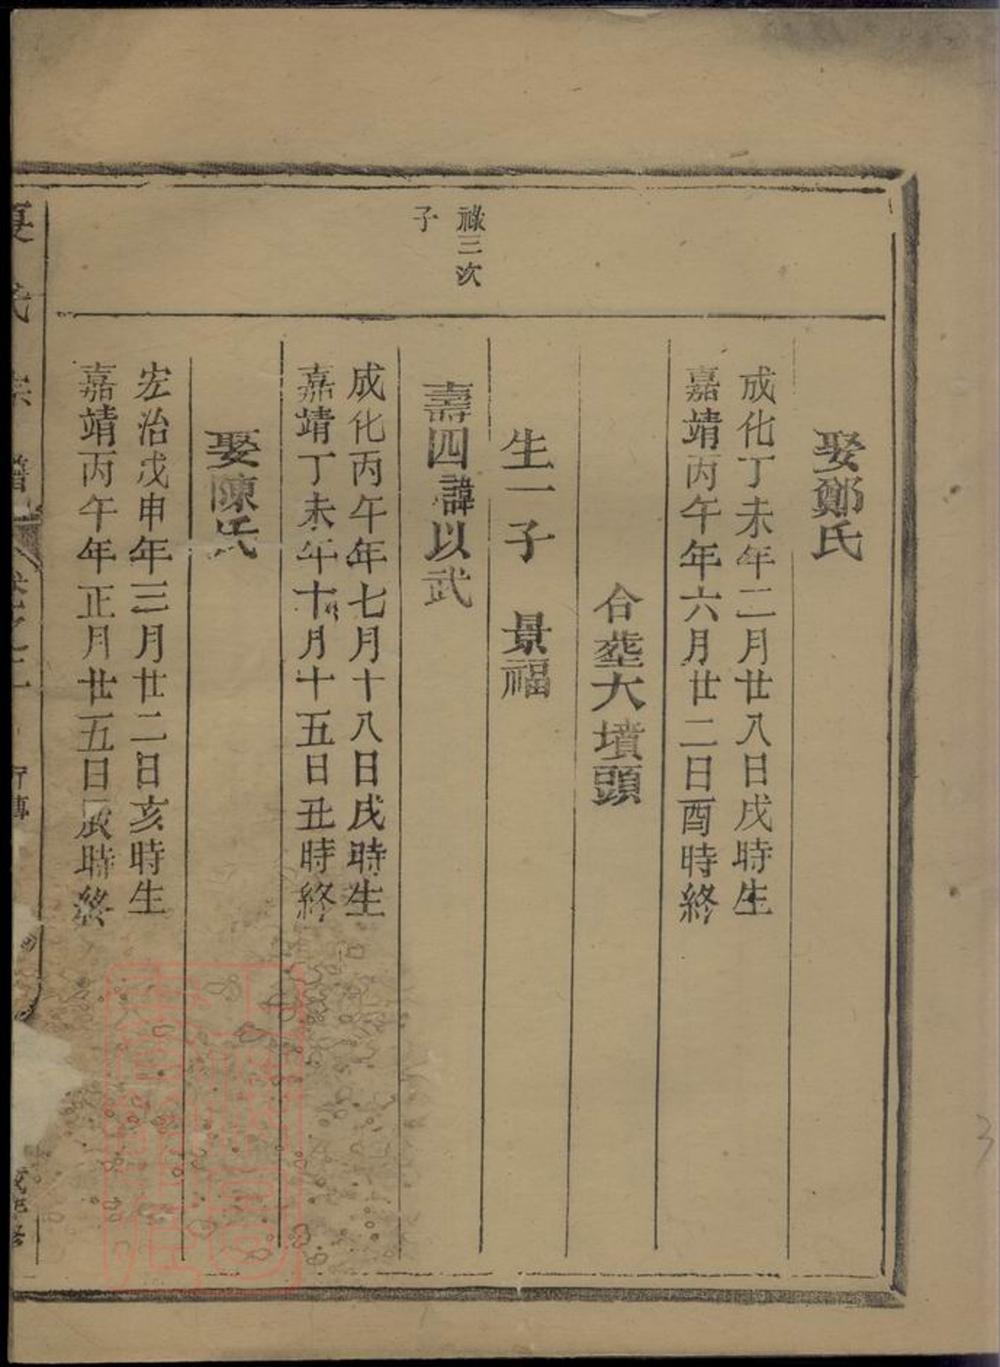 娶鄭氏
成化丁未年二月廿八日戌時生
嘉靖丙午年六月廿二日酉時終
合塟大墳頭
生一子　景福
祿三次
子
壽四諱以武
成化丙午年七月十八日戌時生
嘉靖丁未年十月十五日丑時終
娶陳氏
宏治戊申年三月廿二日亥時生
嘉靖丙午年正月廿五日辰時終
氏宗譜